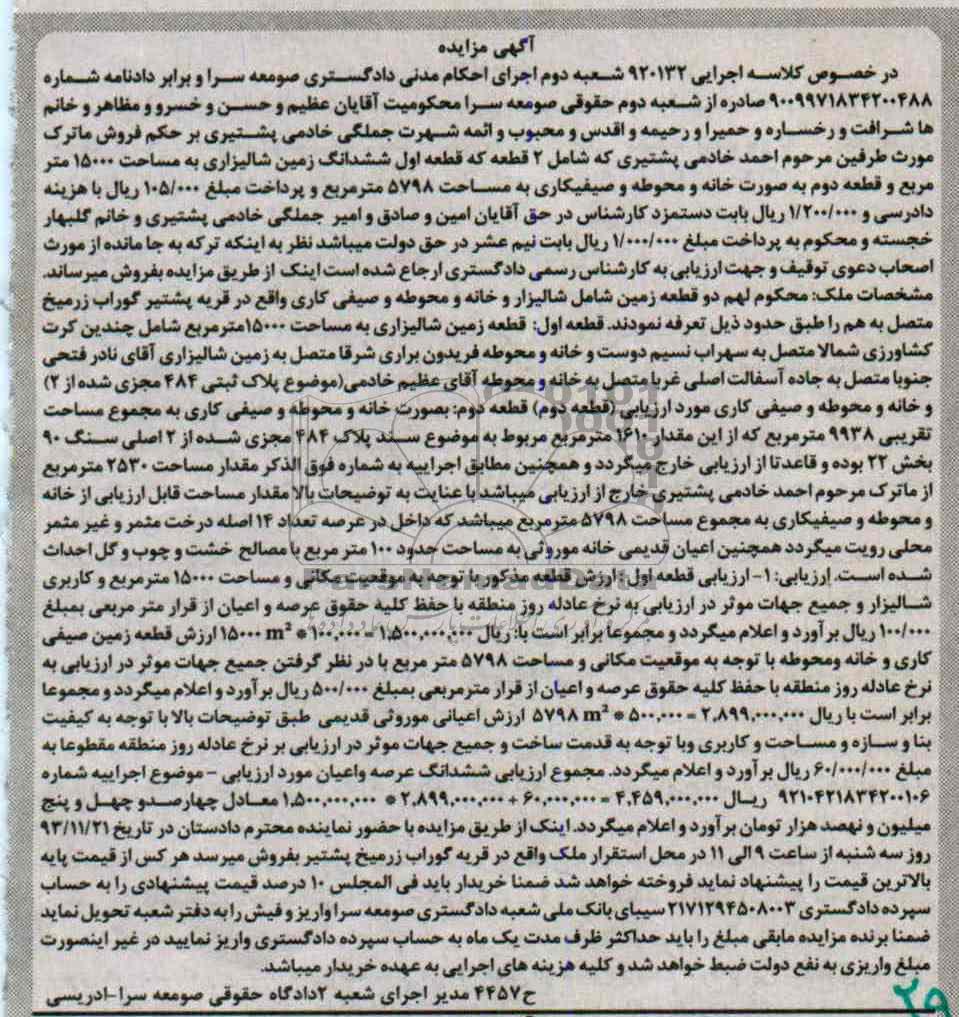 آگهی مزایده
در خصوص کلاسه اجرایی ۹۲۰۱۳۲ شعبه دوم اجرای احکام مدنی دادگستری صومعه سرا و برابر دادنامه شماره
۹۰۰۹۹۷۱۸۳۴۲۰۰۴۸۸ صادره از شعبه دوم حقوقی صومعه سرا محکومیت آقایان عظیم و حسن و خسرو و مظاهر و خانم
ها شرافت و رخساره و حمیرا و رحیمه و اقدس و محبوب و ائمه شهرت جملگی خادمی پشتیری بر حکم فروش ماترک
مورث طرفین مرحوم احمد خادمی پشتیری که شامل ۲ قطعه که قطعه اول ششدانگ زمین شالیزاری به مساحت ۱۵۰۰۰ متر
مربع و قطعه دوم به صورت خانه و محوطه و صیفیکاری به مساحت ۵۷۹۸ مترمربع و پرداخت مبلغ ۱۰۵/۰۰۰ ریال با هزینه
دادرسی و ۱/۲۰۰/۰۰۰ ریال بابت دستمزد کارشناس در حق آقایان امین و صادق و امیر جملگی خادمی پشتیری و خانم گلبهار
خجسته و محکوم به پرداخت مبلغ ۱/۰۰۰/۰۰۰ ریال بابت نیم عشر در حق دولت میباشد نظر به اینکه ترکه به جا مانده از مورث
اصحاب دعوی توقیف و جهت ارزیابی به کارشناس رسمی دادگستری ارجاع شده است اینک از طریق مزایده بفروش میرساند.
مشخصات ملک: محکوم لهم دو قطعه زمین شامل شالیزار و خانه و محوطه و صیفی کاری واقع در قریه پشتیر گوراب زرمیخ
متصل به هم را طبق حدود ذیل تعرفه نمودند. قطعه اول: قطعه زمین شالیزاری به مساحت ۱۵۰۰۰مترمربع شامل چندین کرت
کشاورزی شمالا متصل به سهراب نسیم دوست و خانه و محوطه فریدون براری شرقا متصل به زمین شالیزاری آقای نادر فتحی
جنوبا متصل به جاده آسفالت اصلی غربا متصل به خانه و محوطه آقای عظیم خادمی(موضوع پلاک ثبتی ۴۸۴ مجزی شده از ۲)
و خانه و محوطه و صیفی کاری مورد ارزیابی (قطعه دوم) قطعه دوم: بصورت خانه و محوطه و صیفی کاری به مجموع مساحت
تقریبی ۹۹۳۸ مترمربع که از این مقدار ۱۶۱۰ مترمربع مربوط به موضوع سند پلاک ۴۸۴ مجزی شده از ۲ اصلی سنگ ۹۰
بخش ۲۲ بوده و قاعدتا از ارزیابی خارج میگردد و همچنین مطابق اجراییه به شماره فوق الذکر مقدار مساحت ۲۵۳۰ مترمربع
از ماترک مرحوم احمد خادمی پشتیری خارج از ارزیابی میباشد با عنایت به توضیحات بالا مقدار مساحت قابل ارزیابی از خانه
و محوطه و صیفیکاری به مجموع مساحت ۵۷۹۸ مترمربع میباشد که داخل در عرصه تعداد ۱۴ اصله درخت مثمر و غیر مثمر
محلی رویت میگردد همچنین اعیان قدیمی خانه موروثی به مساحت حدود ۱۰۰ متر مربع با مصالح خشت و چوب و گل احداث
شده است. ارزیابی: ۱- ارزیابی قطعه اول: ارزش قطعه مذکور با توجه به موقعیت مکانی و مساحت ۱۵۰۰۰ مترمربع و کاربری
شالیزار و جمیع جهات موثر در ارزیابی به نرخ عادله روز منطقه با حفظ کلیه حقوق عرصه و اعیان از قرار متر مربعی بمبلغ
۱۰۰/۰۰۰ ریال بر آورد و اعلام میگردد و مجموعا برابر است با: ریال ۱،۵۰۰،۰۰۰،۰۰۰ = ۱۰۰،۰۰۰ * ۱۵۰۰۰ m² ارزش قطعه زمین صیفی
کاری و خانه ومحوطه با توجه به موقعیت مکانی و مساحت ۵۷۹۸ متر مربع با در نظر گرفتن جمیع جهات موثر در ارزیابی به
نرخ عادله روز منطقه با حفظ کلیه حقوق عرصه و اعیان از قرار مترمربعی بمبلغ ۵۰۰/۰۰۰ ریال بر آورد و اعلام میگردد و مجموعا
برابر است با ریال ۲،۸۹۹،۰۰۰،۰۰۰ = ۵۰۰،۰۰۰ * ۵۷۹۸ m² ارزش اعیانی موروثی قدیمی طبق توضیحات بالا با توجه به کیفیت
بنا و سازه و مساحت و کاربری وبا توجه به قدمت ساخت و جمیع جهات موثر در ارزیابی بر نرخ عادله روز منطقه مقطوعا به
مبلغ ۶۰/۰۰۰/۰۰۰ ریال بر آورد و اعلام میگردد. مجموع ارزیابی ششدانگ عرصه واعیان مورد ارزیابی - موضوع اجراییه شماره
۹۲۱۰۴۲۱۸۳۴۲۰۰۱۰۶ ریال ۴،۴۵۹،۰۰۰،۰۰۰ = ۶۰،۰۰۰،۰۰۰ + ۲،۸۹۹،۰۰۰،۰۰۰ * ۱،۵۰۰،۰۰۰،۰۰۰ معادل چهارصدو چهل و پنج
میلیون و نهصد هزار تومان بر آورد و اعلام میگردد. اینک از طریق مزایده با حضور نماینده محترم دادستان در تاریخ ۹۳/۱۱/۲۱
روز سه شنبه از ساعت ۹ الی ۱۱ در محل استقرار ملک واقع در قریه گوراب زرمیخ پشتیر بفروش میرسد هر کس از قیمت پایه
بالاترین قیمت را پیشنهاد نماید فروخته خواهد شد ضمنا خریدار باید فی المجلس ۱۰ درصد قیمت پیشنهادی را به حساب
سپرده دادگستری ۲۱۷۱۲۹۴۵۰۸۰۰۳ سیبای بانک ملی شعبه دادگستری صومعه سرا واریز و فیش را به دفتر شعبه تحویل نماید
ضمنا برنده مزایده مابقی مبلغ را باید حداکثر ظرف مدت یک ماه به حساب سپرده دادگستری واریز نمایید در غیر اینصورت
مبلغ واریزی به نفع دولت ضبط خواهد شد و کلیه هزینه های اجرایی به عهده خریدار میباشد.
ح۴۴۵۷ مدیر اجرای شعبه ۲دادگاه حقوقی صومعه سرا-ادریسی
۲۹